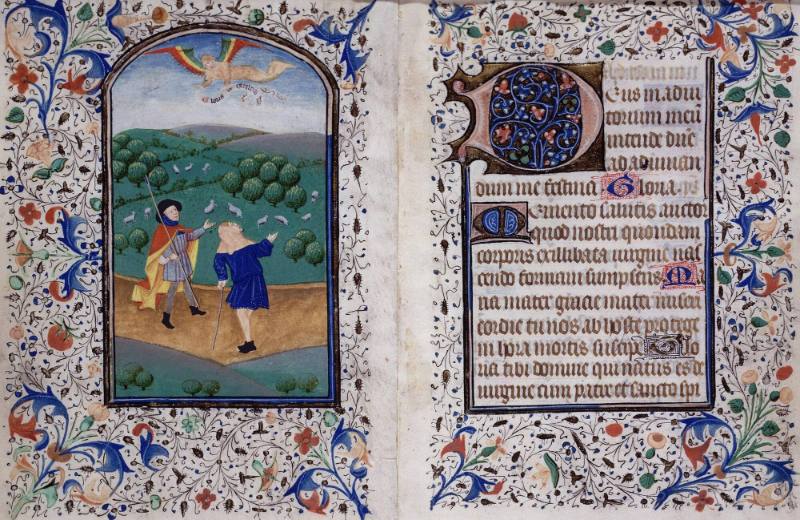 Deus in adiu
torium meū
intende dne
ad adiuuan
dum me festina Gloria
Memento salutis auctor
quod nostri quondam
corporis ex illibata uirgine nas
cendo formam sumpseris Ma
ria mater gracie mater miseri
cordie tu nos ab hoste protege
in hora mortis suscipe Glo
ria tibi domine qui natus es de
uirgine cum patre et sancto spi